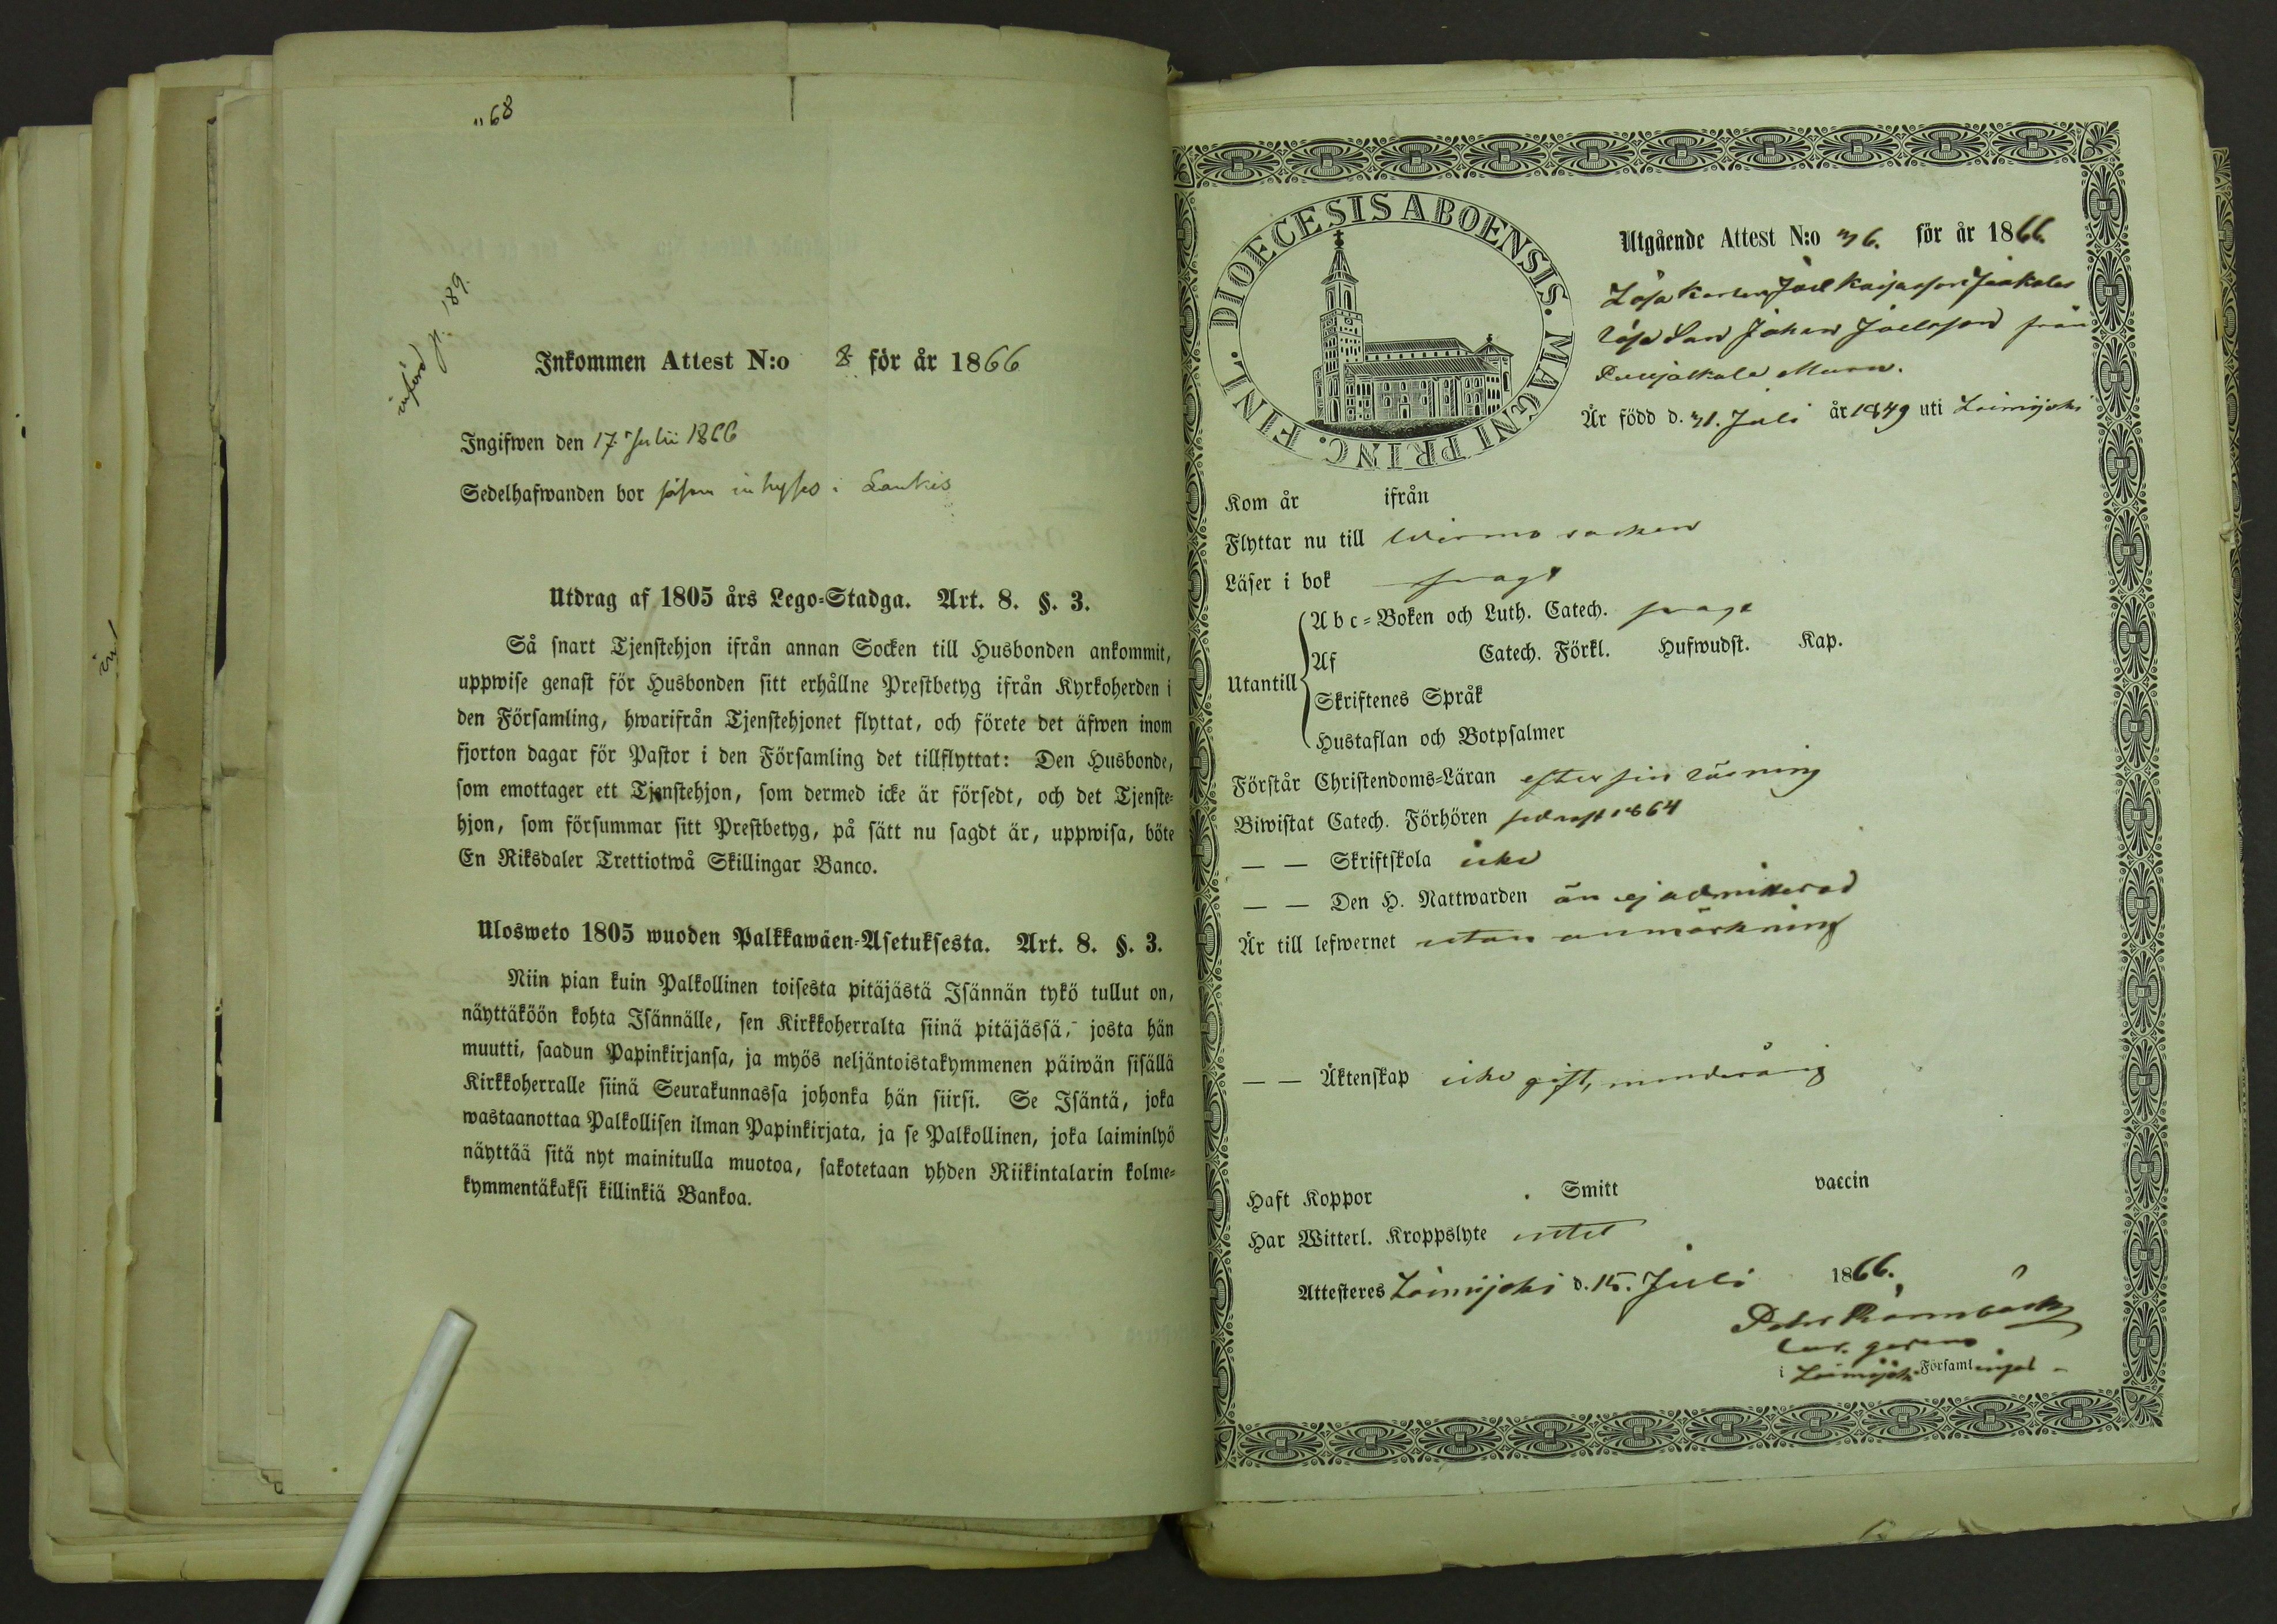 "68
införd p. 189.
Inkommen Attest N:o 8 för år 1866
Ingifwen den 17 Julii 1866
Sedelhafwanden bor såsom inhyses i Laukis
Utdrag af 1805 års Lego-Stadga. Art. 8. §. 3.
Så snart Tjenstehjon ifrån annan Socken till Husbonden ankommit,
uppwise genast för Husbonden sitt erhållne Prestbetyg ifrån Kyrkoherden i
den Församling, hwarifrån Tjenstehjonet flyttat, och förete det äfwen inom
fjorton dagar för Pastor i den Församling det tillflyttat: Den Husbonde,
som emottager ett Tjenstehjon, som dermed icke är försedt, och det Tjenste-
hjon, som försummar sitt Prestbetyg, på sätt nu sagdt är, uppwisa, böte
En Riksdaler Trettiotwå Skillingar Banco.
Ulosweto 1805 wuoden Palkkawäen-Asetuksesta. Art. 8. §. 3.
Niin pian kuin Palkollinen toisesta pitäjästä Isännän tykö tullut on,
näyttäköön kohta Isännälle, sen Kirkkoherralta siinä pitäjässä, josta hän
muutti, saadun Papinkirjansa, ja myös neljäntoistakymmenen päiwän sisällä
Kirkkoherralle siinä Seurakunnassa johonka hän siirsi. Se Isäntä, joka
wastaanottaa Palkollisen ilman Papinkirjata, ja se Palkollinen, joka laiminlyö
näyttää sitä nyt mainitulla muotoa, sakotetaan yhden Riikintalarin kolme-
kymmentäkaksi killinkiä Bankoa.
DIOECESIS ABOENSIS. MAGNI PRINC. FINL.
Utgående Attest N:o 76. för år 1866.
Lösa Karlen Joel
lösa Son Johan Joelsson från
Är född d. Juli år 1849 uti Loimijoki
Kom år ifrån
Flyttar nu till Wirmo socken
Läser i bok svagt
Utantill
Abc-Boken och Luth. Catech. svagt
Af Catech. Förkl. Hufwudst. Kap.
Skriftenes Språk
Hustaflan och Botpsalmer
Förstår Christendoms-Läran efter sin läsning
Biwistat Catech. Förhören sednast 1864
— — Skriftskola icke
— — Den H. Nattwarden än ej admitterad
Är till lefwernet utan anmärkning
— — Äktenskap icke gift, minderårig
Haft Koppor Smitt vaccin
Har Witterl. Kroppslyte intet
Attesteres Loimijoki d. 15. Juli 1866.
Petr Rönnbäck
Cur. gerens
i Loimijoki Församlingar